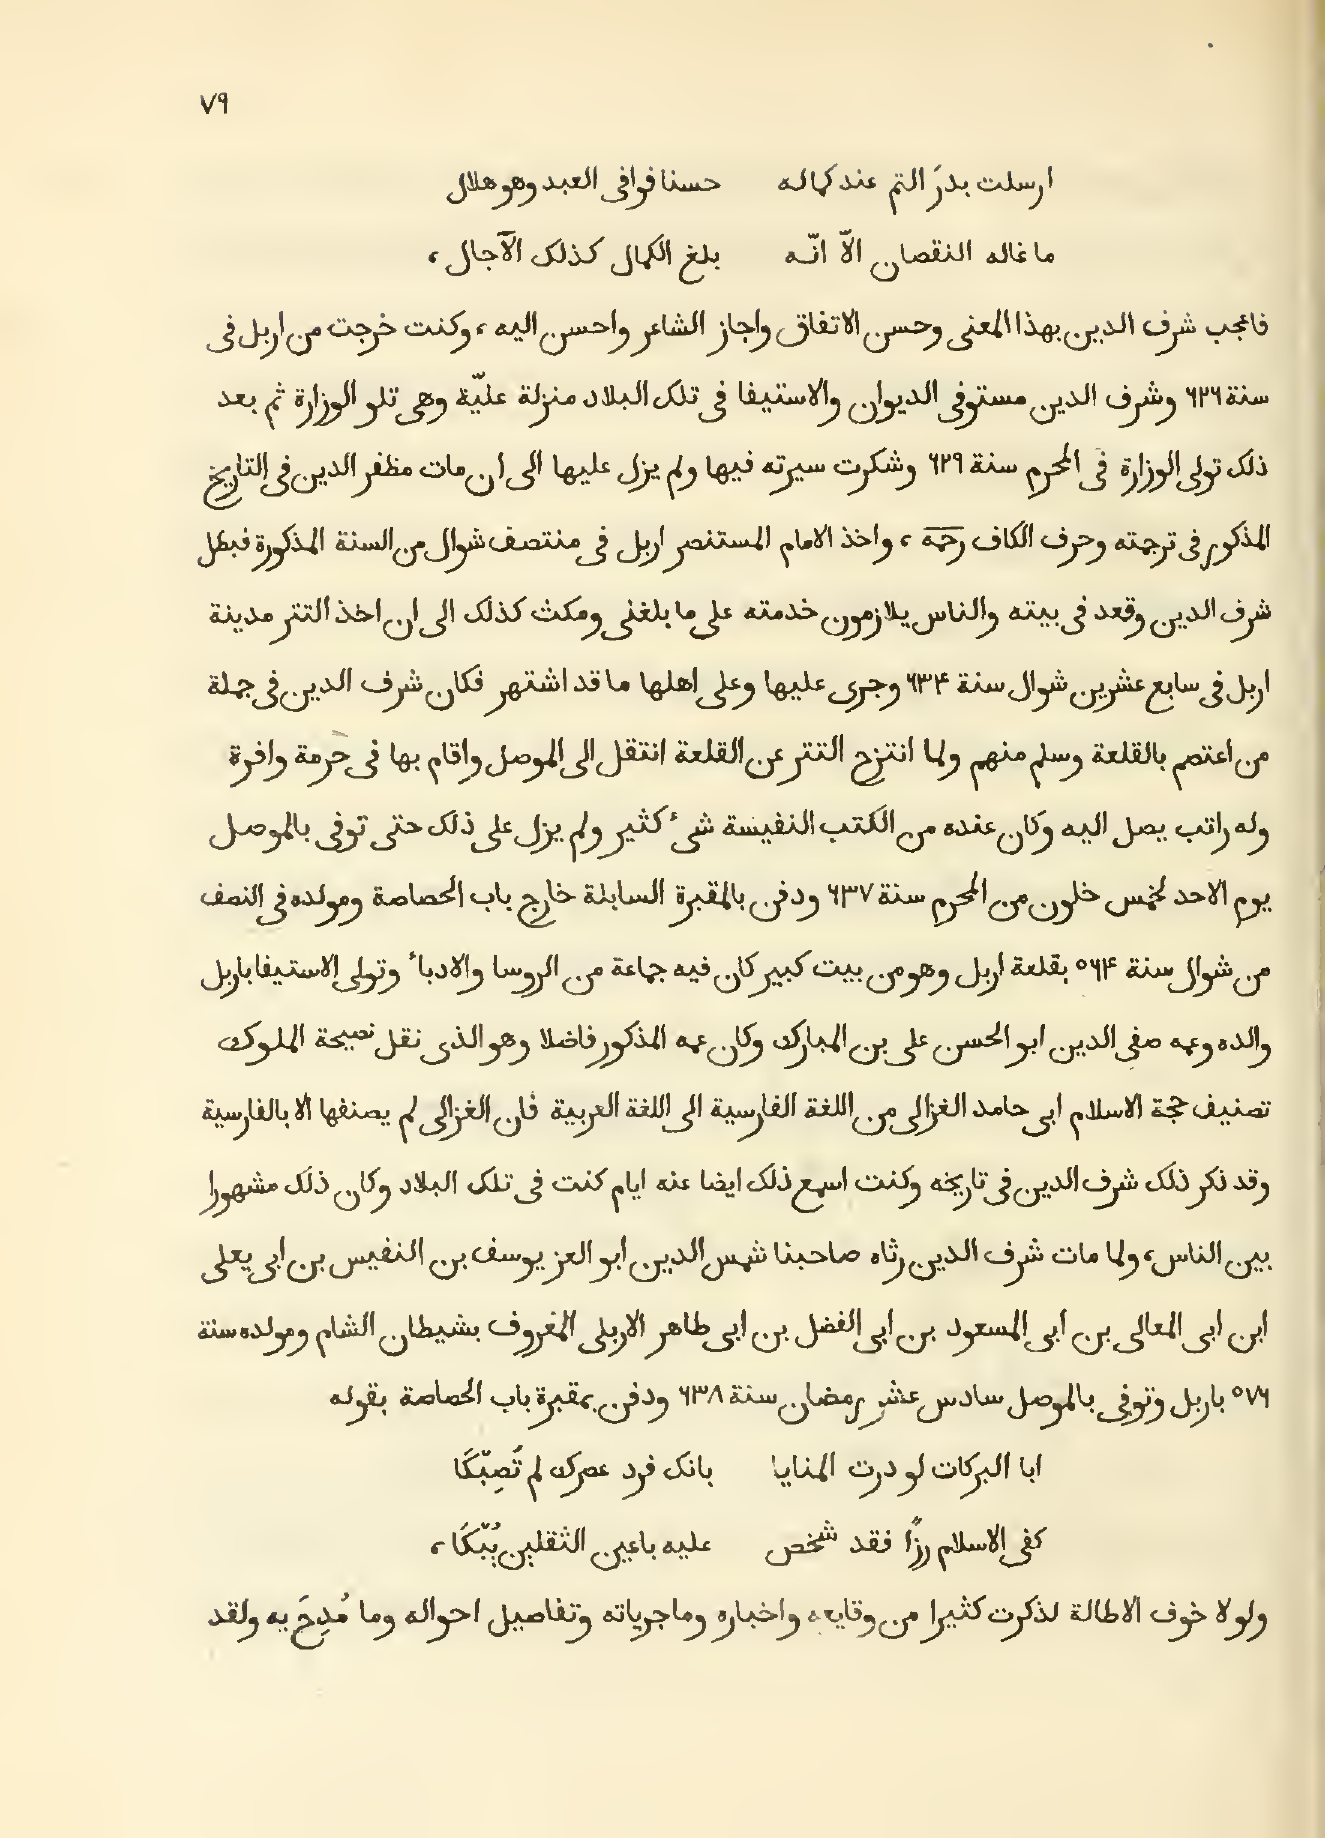 ٧٩
ارسلت بدرَ التم عند كماله حسنا فوافى العبد وهو هلال
ما غاله النقصان الاّ انّه بلغ الكمال كذلك الآجال ،
فاعجب شرف الدين بهذا المعنى وحسن الاتفاق واجاز الشاعر واحسن اليه ، وكنت خرجت من اربل فى
سنة ٦٢٦ وشرف الدين مستوفى الديوان والاستيفا فى تلك البلاد منزلة عليّة وهى تلو الوزارة ثم بعد
ذلك تولى الوزارة فى المحرم سنة ٦٢٩ وشكرت سيرته فيها ولم يزل عليها الى ان مات مظفر الدين فى التاريخ
المذكور فى ترجمته وحرف الكاف رحمه ، واخذ الامام المستنصر اربل فى منتصف شوال من السنة المذكورة فبطل
شرف الدين وقعد فى بيته والناس يلازمون خدمته على ما بلغنى ومكث كذلك الى ان اخذ التتر مدينة
اربل فى سابع عشرين شوال سنة ٦٣٤ وجرى عليها وعلى اهلها ما قد اشتهر فكان شرف الدين فى جملة
من اعتصم بالقلعة وسلم منهم ولما انتزح التتر عن القلعة انتقل الى الموصل واقام بها فى حرمة وافرة
وله راتب يصل اليه وكان عنده من الكتب النفيسة شىء كثير ولم يزل على ذلك حتى توفى بالموصل
يوم الاحد لخمس خلون من المحرم سنة ٦٣٧ ودفن بالمقبرة السابلة خارج باب الحصاصة ومولده فى النصف
من شوال سنة ٥٦٤ بقلعة اربل وهو من بيت كبير كان فيه جماعة من الروسا والادباء وتولى الاستيفا باربل
والده وعمه صفى الدين ابو الحسن على بن المبارك وكان عمه المذكور فاضلا وهو الذى نقل نصيحة الملوك
تصنيف حجة الاسلام ابى حامد الغزالى من اللغة الفارسية الى اللغة العربية فان الغزالى لم يصنفها الا بالفارسية
وقد ذكر ذلك شرف الدين فى تاريخه وكنت اسمع ذلك ايضا عنه ايام كنت فى تلك البلاد وكان ذلك مشهورا
بين الناس ، ولما مات شرف الدين رثاه صاحبنا شمس الدين ابو العز يوسف بن النفيس بن ابى يعلى
ابن ابى المعالى بن ابى المسعود بن ابى الفضل بن ابى طاهر الاربلى المعروف بشيطان الشام ومولده سنة
٥٧٦ باربل وتوفى بالموصل سادس عشر رمضان سنة ٦٣٨ ودفن بمقبرة باب الحصاصة بقوله
ابا البركات لو درت المنايا بانك فرد عصرك لم تُصِبْكَا
كفى الاسلام رزًا فقد شخص عليه باعين الثقلين يُبْكَا ،
ولولا خوف الاطالة لذكرت كثيرا من وقايعه واخباره وماجرياته وتفاصيل احواله وما مُدِحَ به ولقد